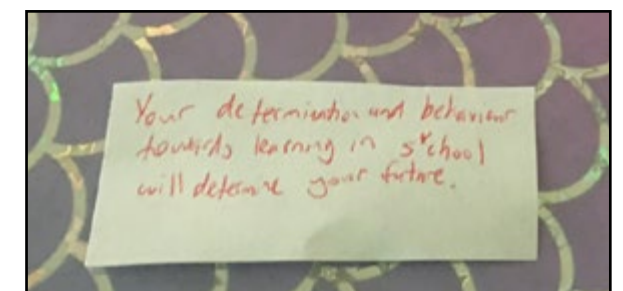 Your determination and behaviour
towards learning in school
will determine your future.